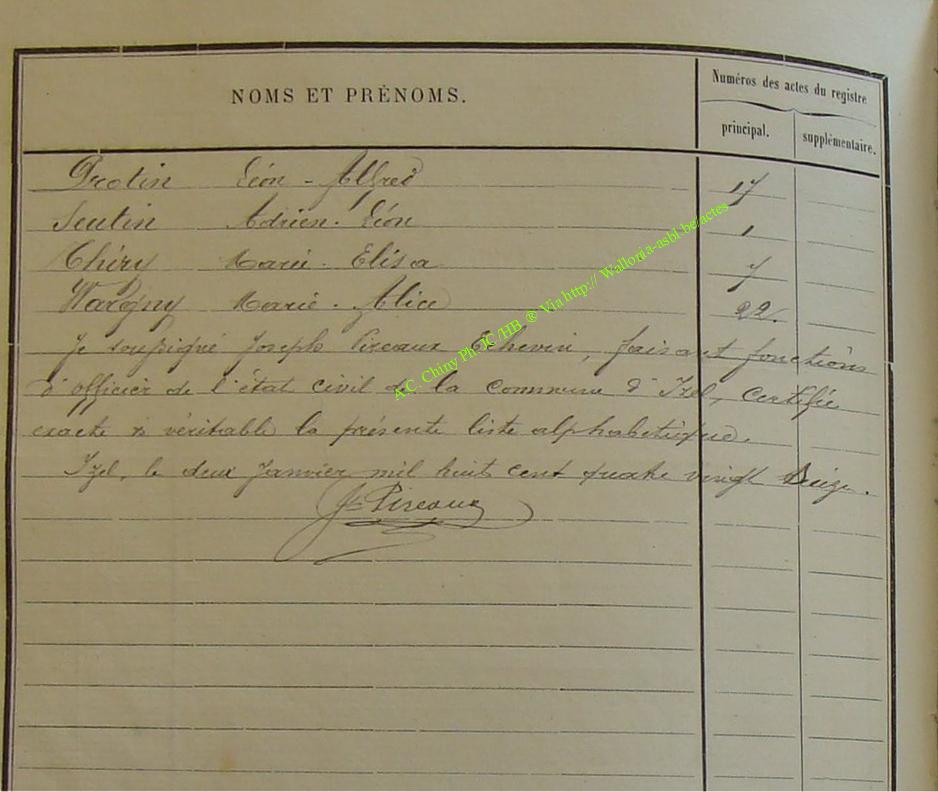 NOMS ET PRÉNOMS.
Numéros des actes du registre
principal.
supplémentaire.
Protin Léon - Alfred 17
Sentin Adrien - Léon 1
Théry Marie - Elisa 7
Wargny Marie - Alice 22.
Je soussigné Joseph Pireaux Echevin, faisant fonctions
d'officier de l'état civil de la commune d'Izel, certifie
exacte & véritable la présente liste alphabétique.
Izel, le deux Janvier mil huit cent quatre vingt
Jh Pireaux
A.C. Chiny Ph JC /HB ® Via http:// Wallonia-asbl.be/actes